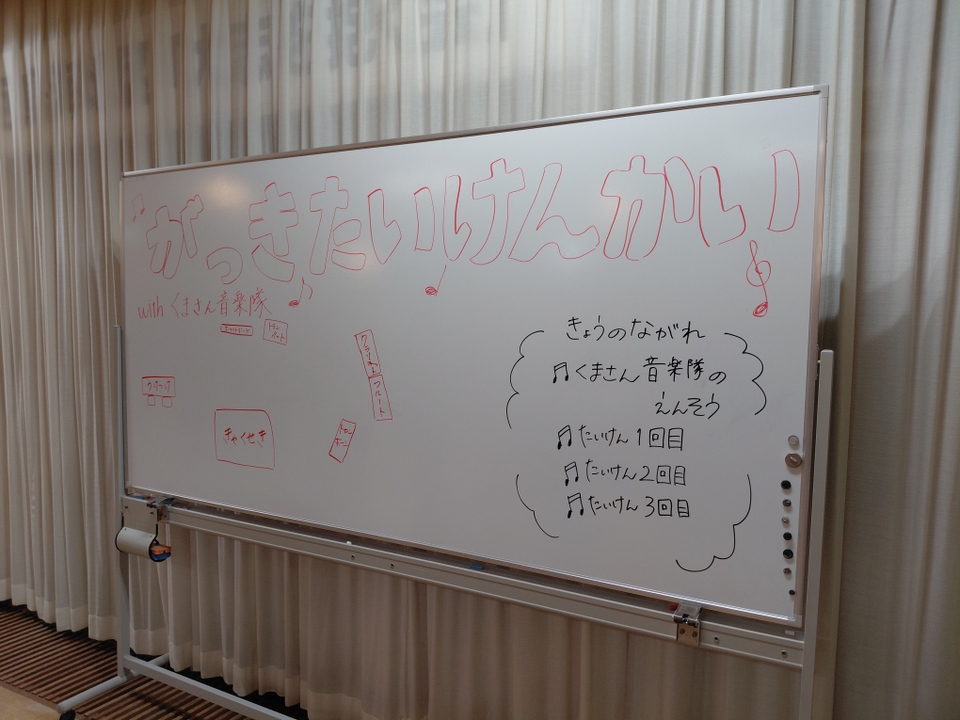 がっきたいけんかい
with くまさん音楽隊
トラン
ペット
クラリネット
フルート
うけつけ
きゃくせき
トロン
ボーン
きょうのながれ
くまさん音楽隊の
えんそう
たいけん1回目
たいけん2回目
たいけん3回目